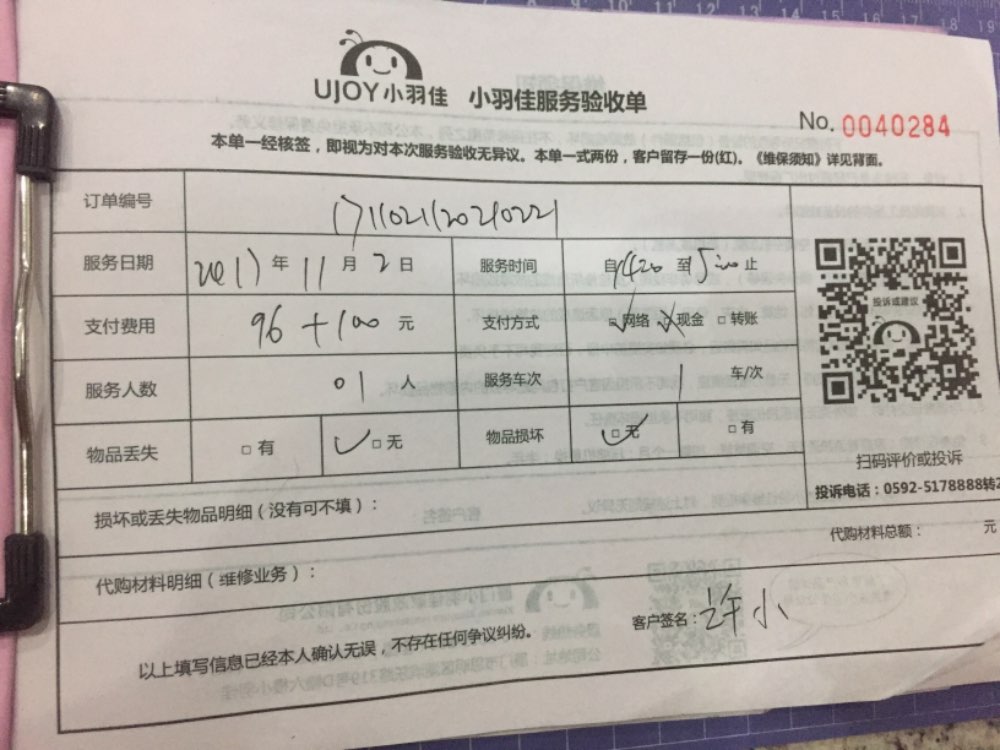 UJOY小羽佳 小羽佳服务验收单
No. 0040284
本单一经核签，即视为对本次服务验收无异议。本单一式两份，客户留存一份(红)。《维保须知》详见背面。
订单编号 1711021120210221
服务日期 2017年11月2日 服务时间 自1420至1500止
支付费用 96+100元 支付方式 网络 现金 转账
服务人数 01人 服务车次 1车/次
物品丢失 有 无 物品损坏 无 有
投诉或建议
扫码评价或投诉
投诉电话：0592-5178888转2
损坏或丢失物品明细(没有可不填)：
代购材料总额： 元
代购材料明细(维修业务)：
客户签名：许小
以上填写信息已经本人确认无误，不存在任何争议纠纷。